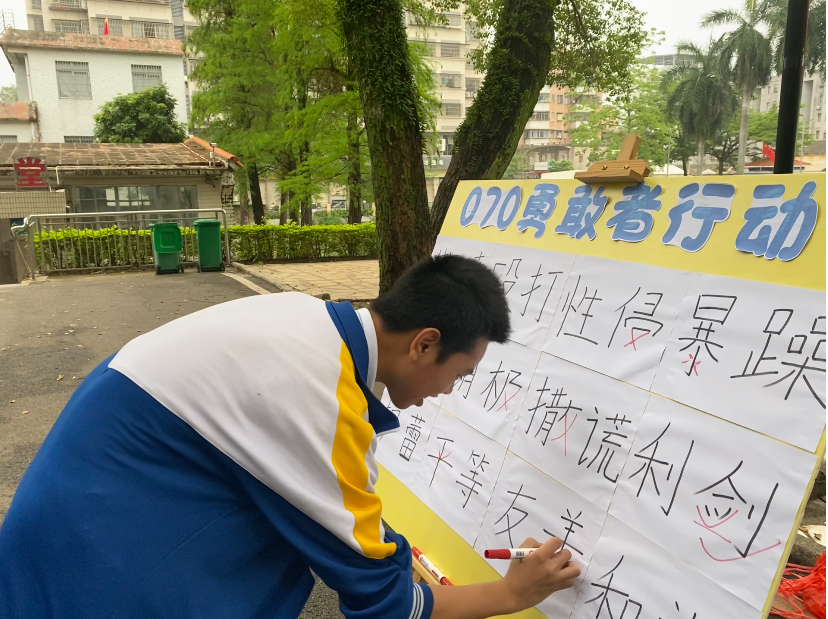 堂
070勇敢者行动
打 性侵 暴躁
极 撒谎 利剑
蕾 平等 友善
和